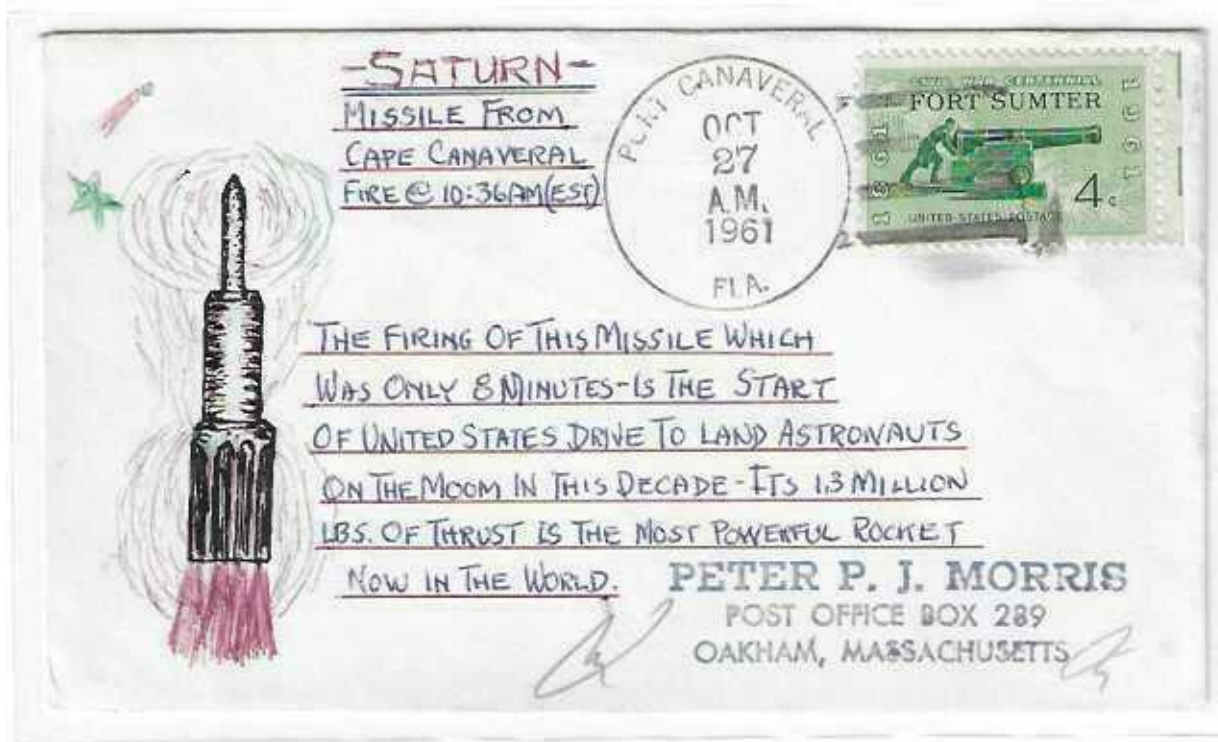 -SATURN-
MISSILE FROM
CAPE CANAVERAL
FIRE @ 10:36AM (EST)
PORT CANAVERAL
OCT
27
A.M.
1961
FLA.
CIVIL WAR CENTENNIAL
FORT SUMTER
1861
1961
4c
UNITED STATES POSTAGE
THE FIRING OF THIS MISSILE WHICH
WAS ONLY 8 MINUTES-IS THE START
OF UNITED STATES DRIVE TO LAND ASTRONAUTS
ON THE MOOM IN THIS DECADE-ITS 1.3 MILLION
LBS. OF THRUST IS THE MOST POWERFUL ROCKET
NOW IN THE WORLD.
PETER P. J. MORRIS
POST OFFICE BOX 289
OAKHAM, MASSACHUSETTS